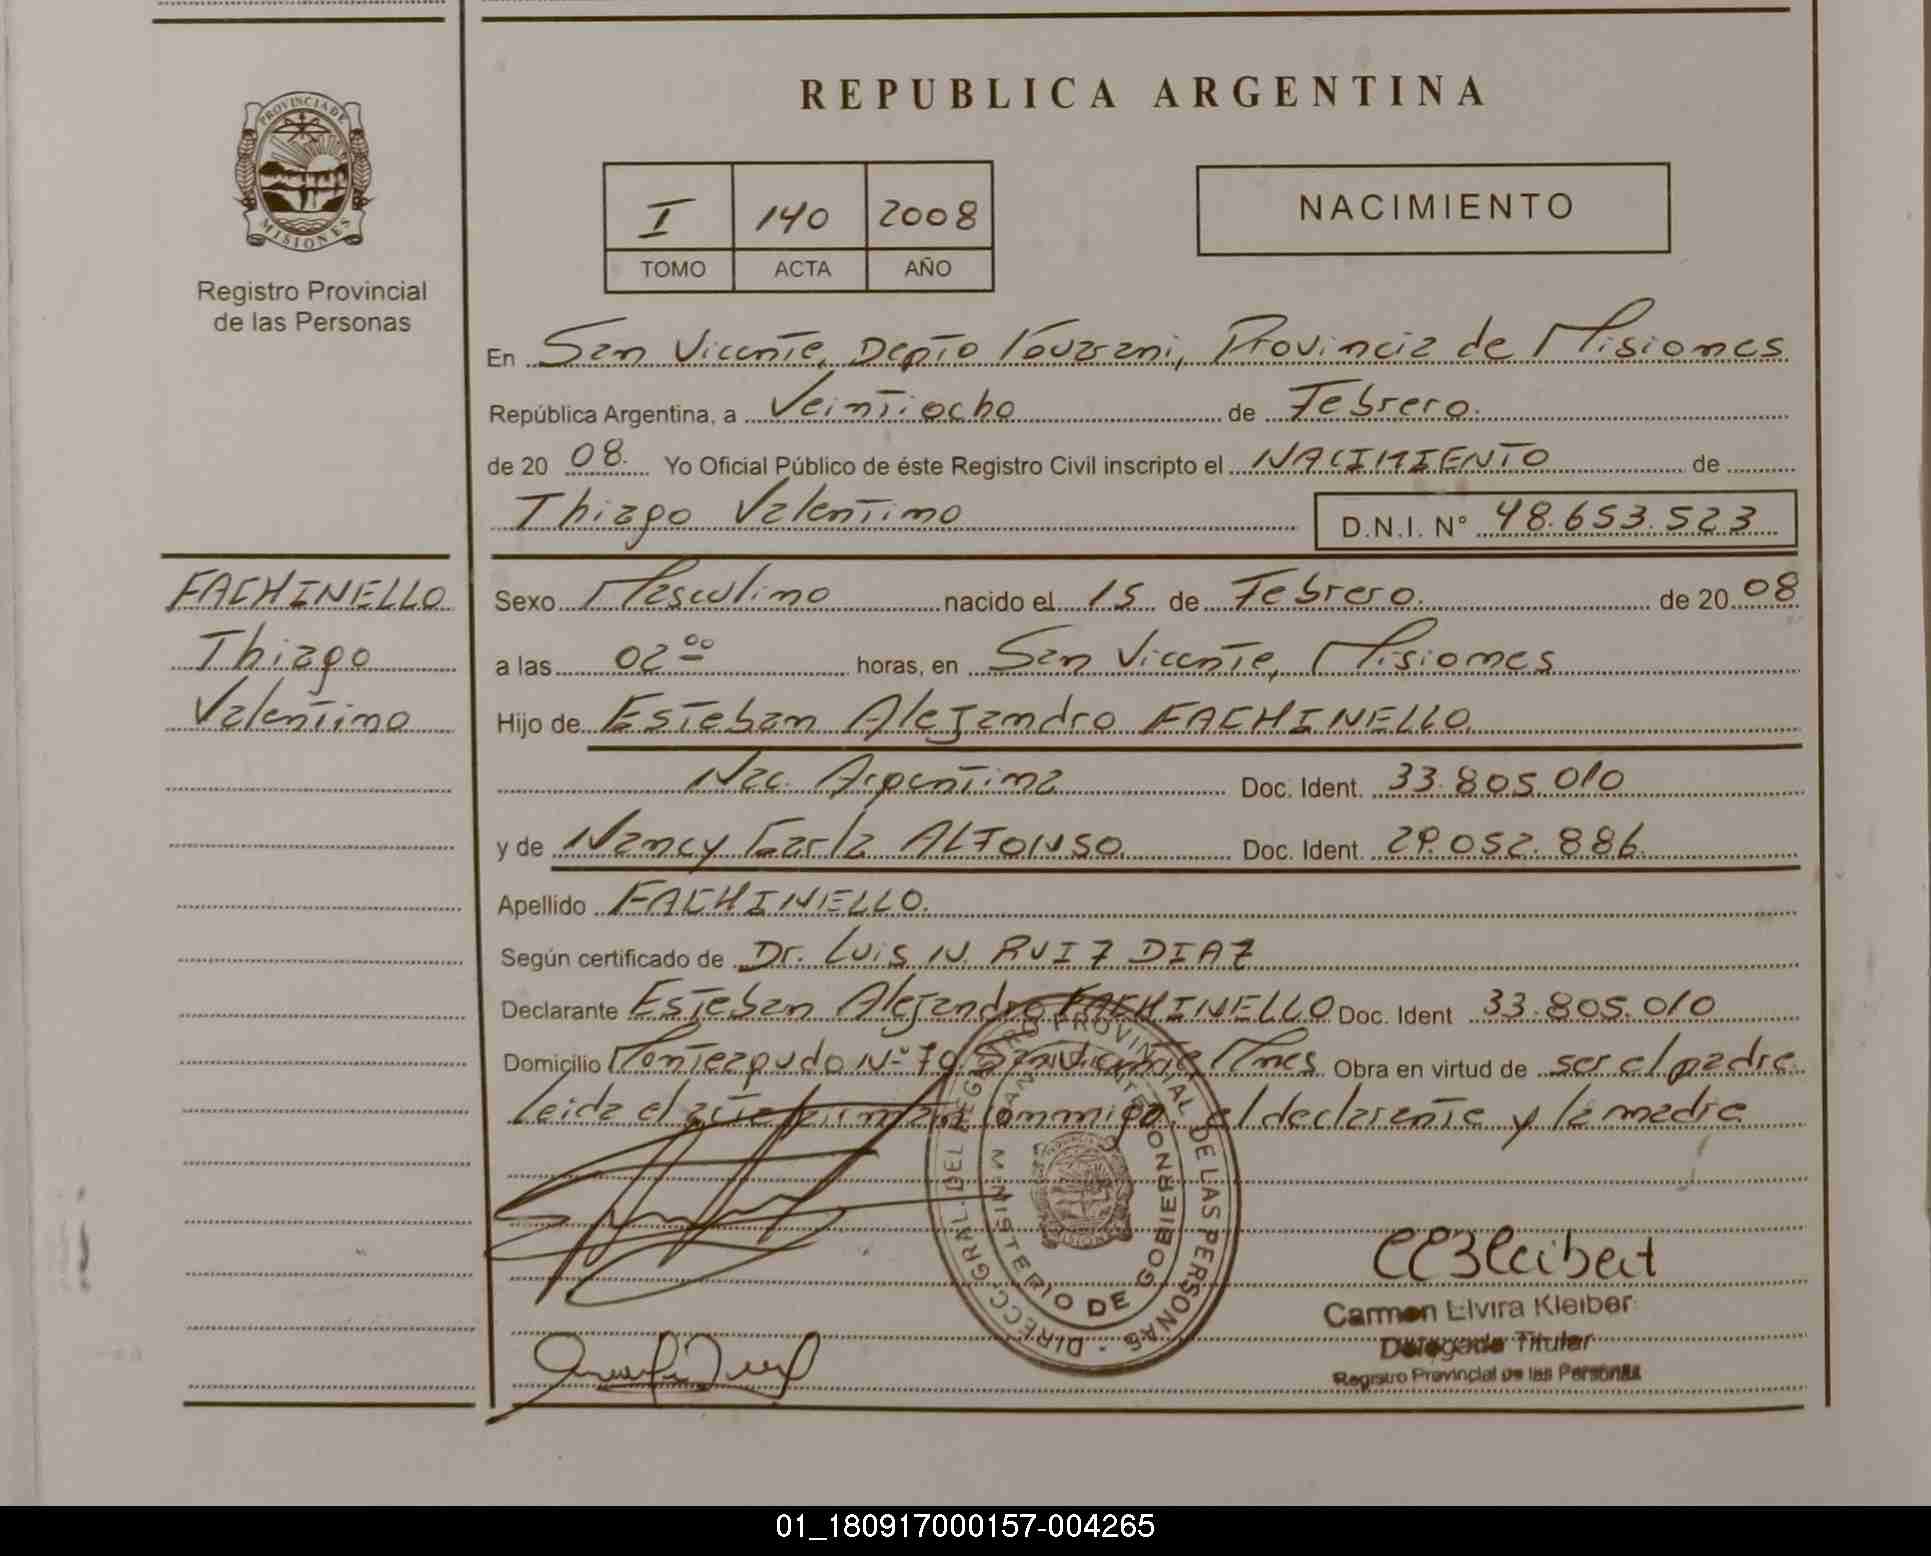 PROVINCIA DE
MISIONES
Registro Provincial
de las Personas
REPUBLICA ARGENTINA
I 140 2008
TOMO ACTA AÑO
NACIMIENTO
En San Vicente, Depto Guarani, Provincia de Misiones
República Argentina, a Veintiocho de Febrero.
de 20 08. Yo Oficial Público de éste Registro Civil inscripto el NACIMIENTO de
Thiago Valentino D.N.I. N° 48.653.523
FACHINELLO
Thiago
Valentino
Sexo Masculino nacido el 15 de Febrero. de 20 08
a las 02 00 horas, en San Vicente, Misiones
Hijo de Esteban Alejandro FACHINELLO.
Nac. Argentina Doc. Ident. 33.805.010
y de Nancy Carla ALFONSO. Doc. Ident. 29.052.886.
Apellido FACHINELLO.
Según certificado de Dr. Luis N. RUIZ DIAZ
Declarante Esteban Alejandro FACHINELLO Doc. Ident 33.805.010
Domicilio Monteagudo N° 79 San Vicente, Mnes Obra en virtud de ser el padre
Leida el acta firman conmigo, el declarante y la madre
DIRECC. GRAL. DEL REGISTRO PROVINCIAL DE LAS PERSONAS
MINISTERIO DE GOBIERNO
Carmen Elvira Kleiber
Delegada Titular
Registro Provincial de las Personas
01_180917000157-004265